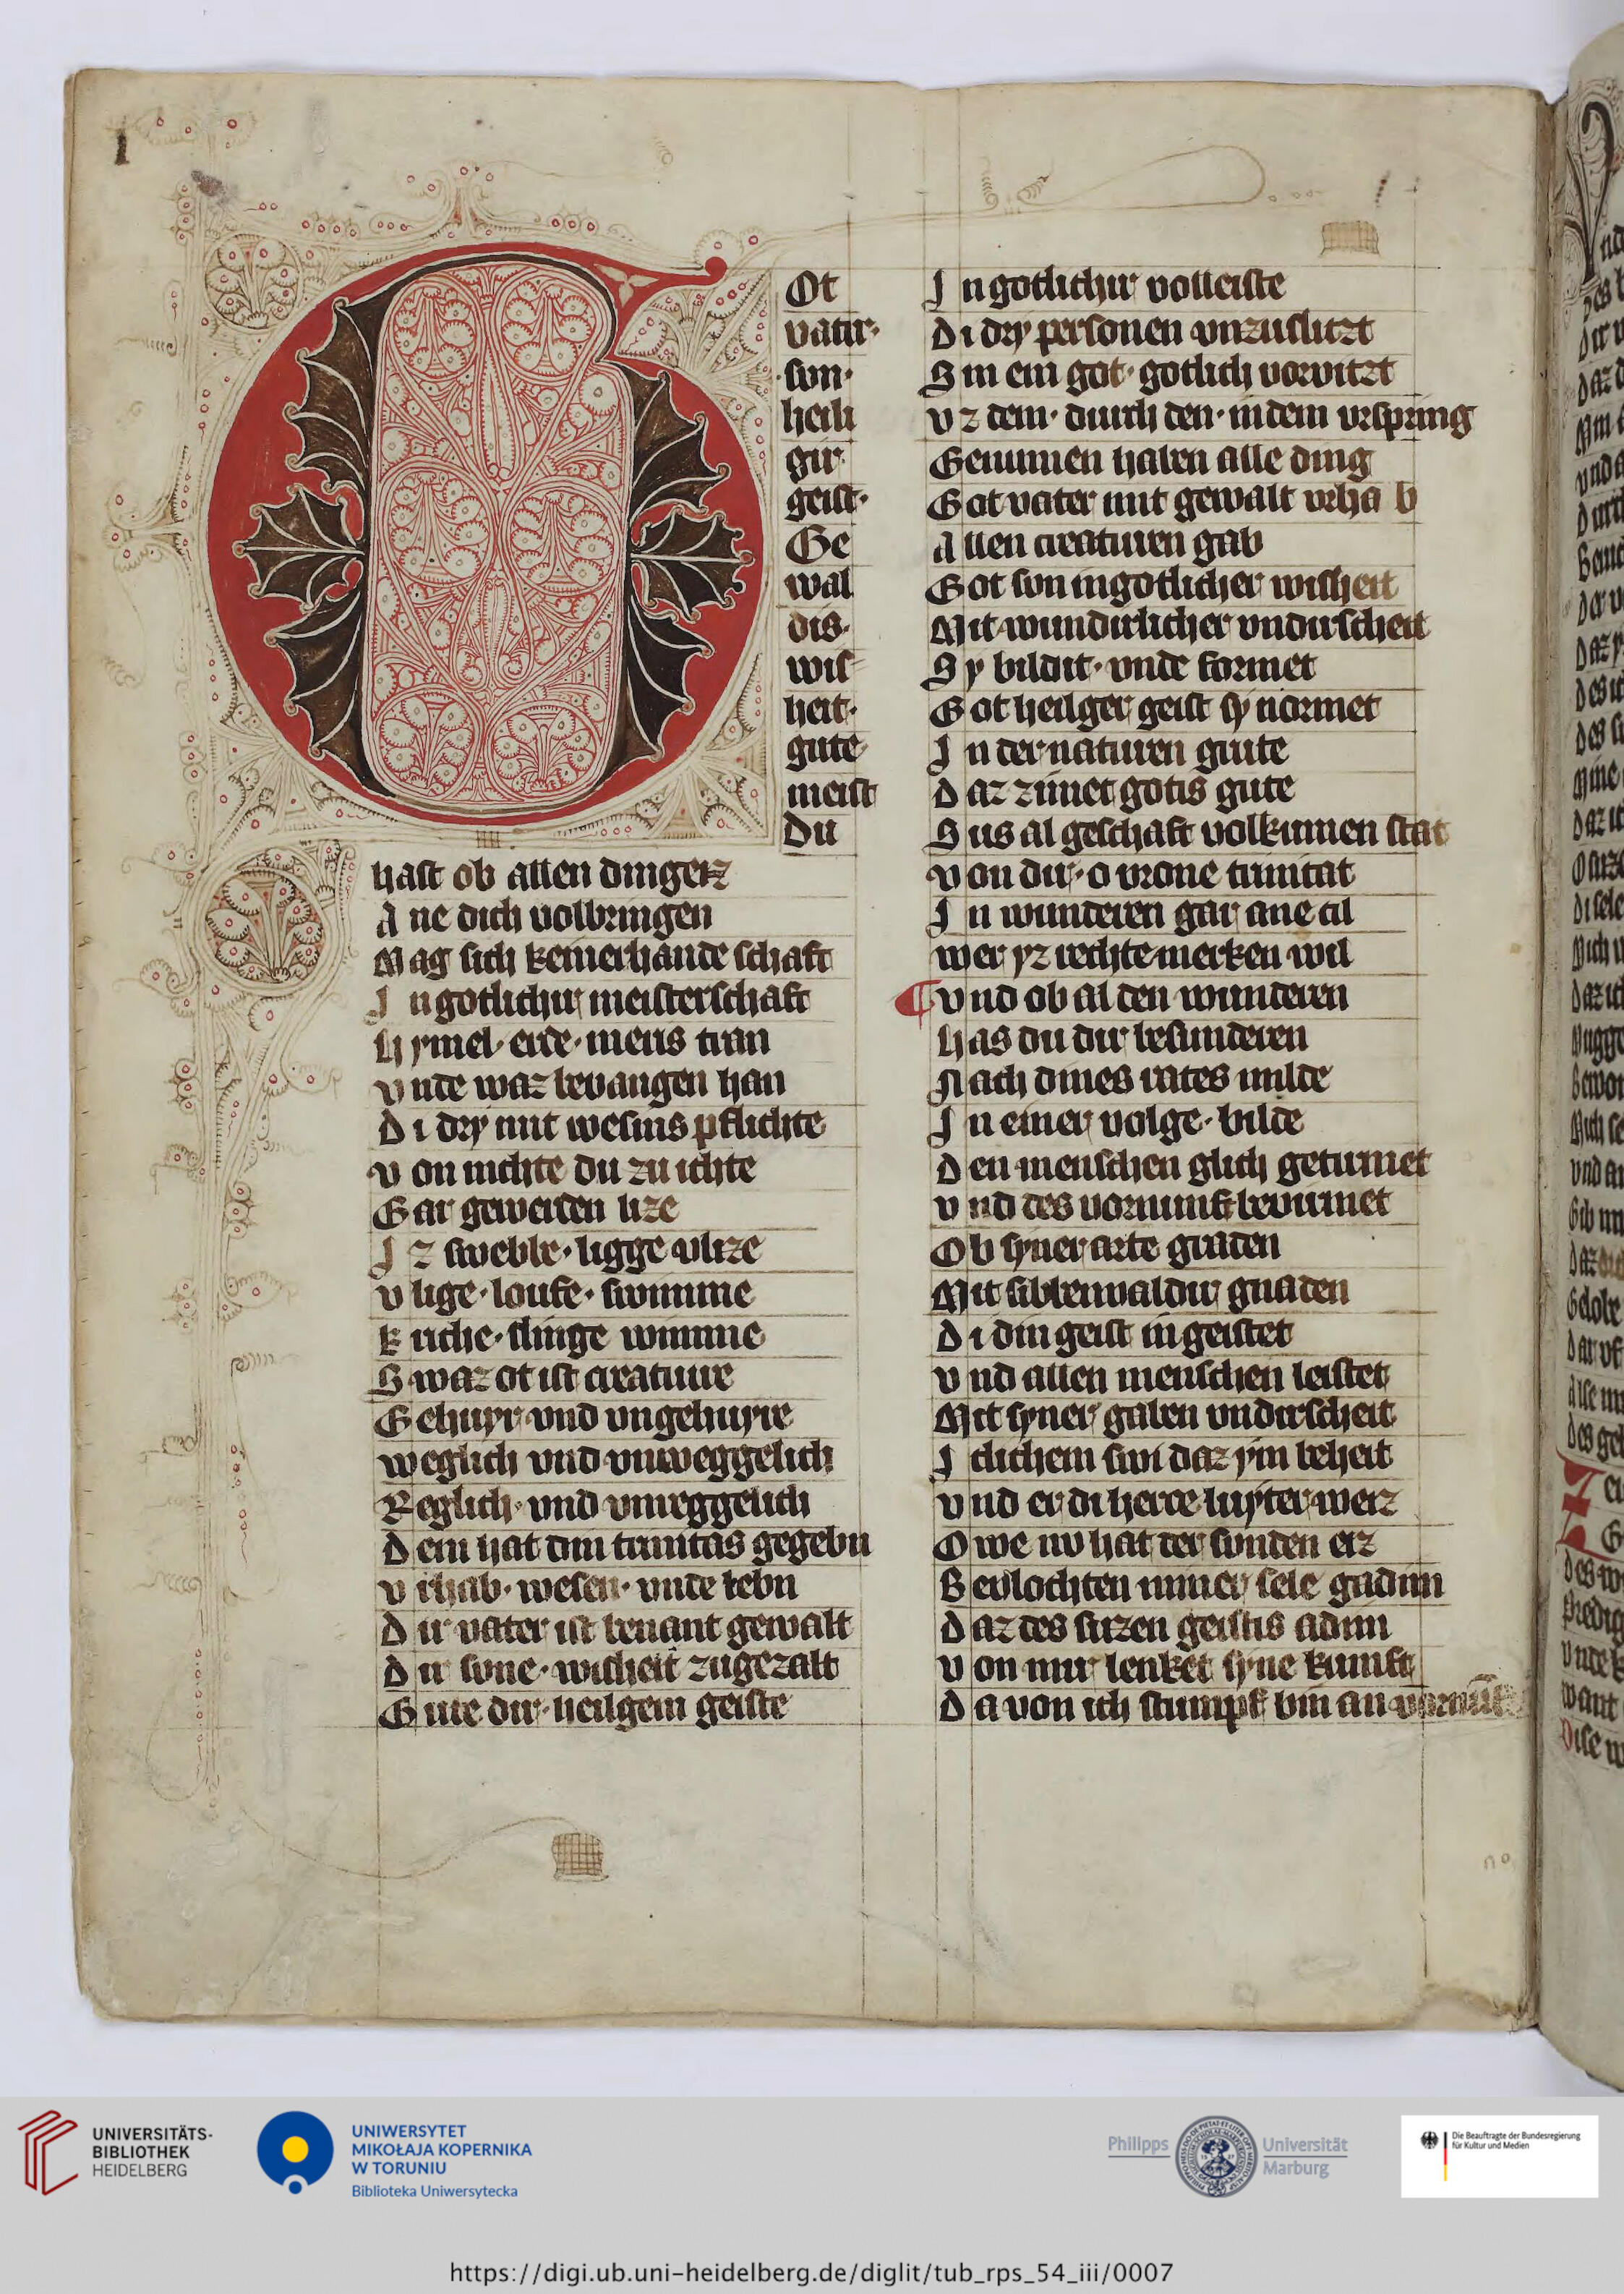 1
Ot
vatir·
·sun·
heili
gir
geist·
Ge
wal
dis·
wis-
heit·
gute
meist
Du
hast ob allen dingen
Ane dich volbringen
Mag sich keinerhande schaft
In gotlichir meisterschaft
Hymel· erde· meris tran
Vnde waz bevangen han
Di dry mit wesins pflichte
Von nichte du zu ichte
Gar gewerden lize
Iz swebbe· ligge vlize
Vlige· loufe· swimme
Kriche· slinge wimme
Swaz ot ist creature
Gehuyr vnd vngehuyre
Weglich vnd vnweggelich
Reglich· vnd vnreggelich
Dem hat din trinitas gegebn
Vrhab· wesen· vnde lebn
Dir vater ist benant gewalt
Dir sone· wisheit zugezalt
Gute dir· heilgem geiste
In gotlichir volleiste
Di dry personen vnzuslitzt
Sin ein got· gotlich vorvitzt
Vz dem· durch den· in dem vrspring
Genumen haben alle ding
Got vater mit gewalt vrha b
Allen creaturen gab
Got son in gotlicher wisheit
Mit wundirlicher vndirscheit
Sy bildit· vnde formet
Got heilger geist sy normet
In der naturen grute
Daz zimet gotis gute
Sus al geschaft volkumen stat
Von dir· o vrone trinitat
In wunderen gar ane til
Wer yz rechte merken wil
¶ Vnd ob al den wunderen
Has du dir besunderen
Nach dines rates milde
In einer volge· bilde
Den menschen glich geturmet
Vnd des vornunft bevurmet
Ob syner arte graden
Mit sibbenvaldir gnaden
Di din geist in geistet
Vnd allen menschen leistet
Mit syner gaben vnderscheit
Iclichem sint daz ym beheit
Vnd er di herce luyter werz
Owe nv hat der sunden erz
Bevlochten miner sele gadmn
Daz des suzen geistis admn
Von mir lenket syne kumft
Da von ich stumpf bin an vornuft
UNIVERSITÄTS-
BIBLIOTHEK
HEIDELBERG
UNIWERSYTET
MIKOŁAJA KOPERNIKA
W TORUNIU
Biblioteka Uniwersytecka
Philipps Universität
Marburg
Die Beauftragte der Bundesregierung
für Kultur und Medien
https://digi.ub.uni-heidelberg.de/diglit/tub_rps_54_iii/0007